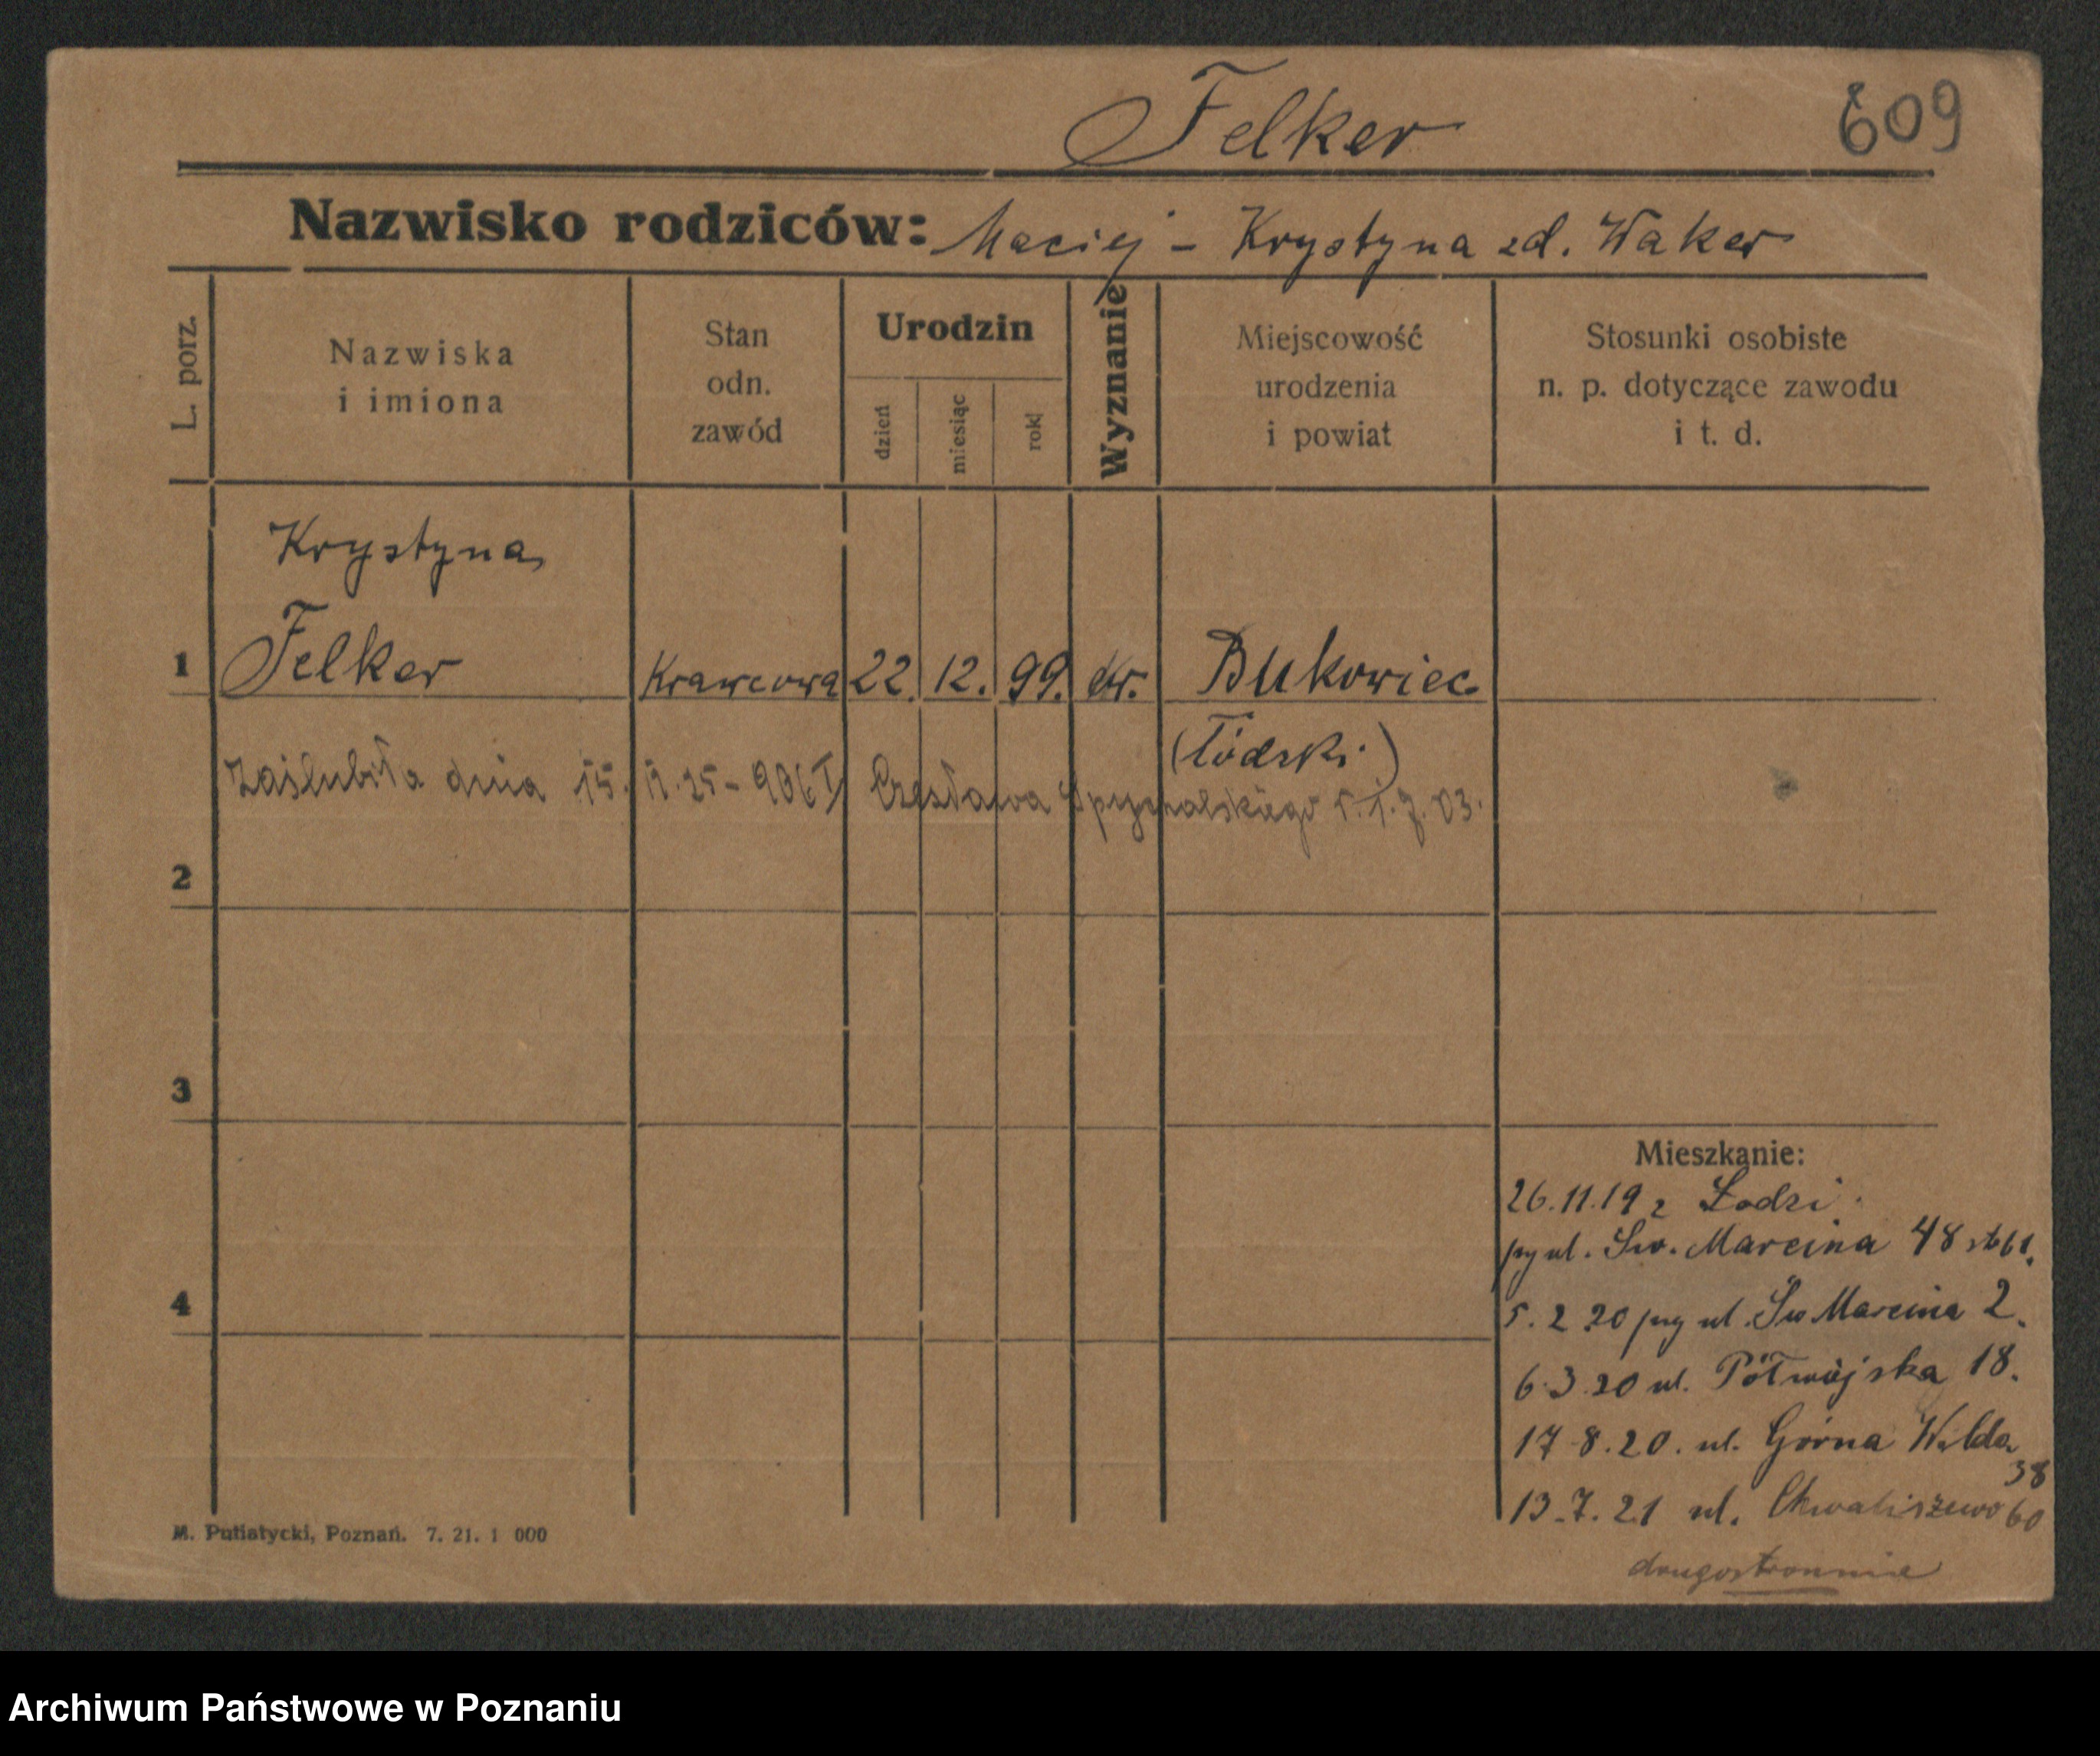 Felker
609
Nazwisko rodziców: Maciej - Krystyna zd. Waker
L. porz.
Nazwiska
i imiona
Stan
odn.
zawód
Urodzin
dzień
miesiąc
rok
Wyznanie
Miejscowość
urodzenia
i powiat
Stosunki osobiste
n. p. dotyczące zawodu
i t. d.
Krystyna
1 Felker Krawcowa 22. 12. 99. Bukowiec
(Łódzki)
Zaślubiła dnia 15. 11. 25 - 906 I Czesława Spychalskiego 7. 03.
2
3
4
Mieszkanie:
26.11.19 z Łodzi
ul. Św. Marcina 48
5. 2 20 ul. Św Marcina 2.
6. 3. 20 ul. Półwiejska 18.
17. 8. 20. ul. Górna Wilda
38
13. 7. 21 ul. Chwaliszewo 60
drugostronnie
M. Putiatycki, Poznań. 7. 21. 1 000
Archiwum Państwowe w Poznaniu